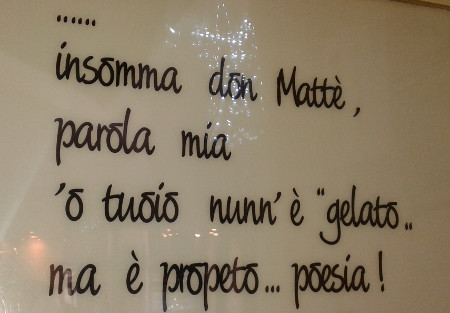 ......
insomma don Mattè,
parola mia
'o tuoio nunn' è "gelato..
ma è propeto... poesia!